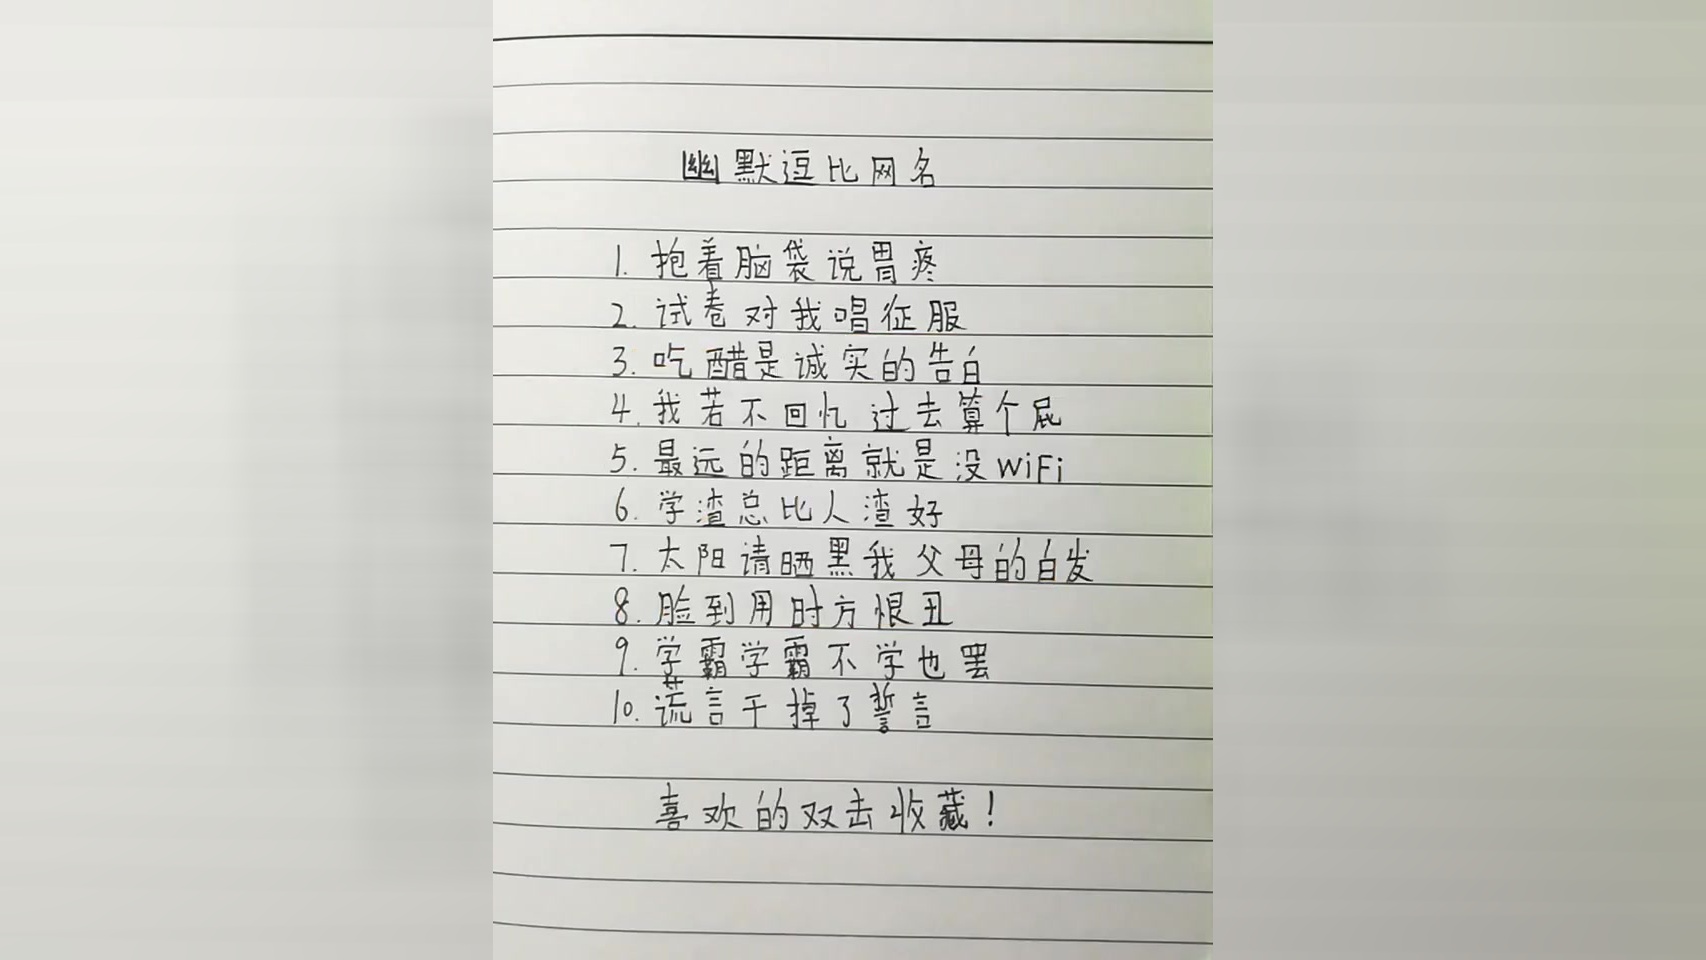 幽默逗比网名
1. 抱着脑袋说胃疼
2. 试卷对我唱征服
3. 吃醋是诚实的告白
4. 我若不回忆过去算个屁
5. 最远的距离就是没WiFi
6. 学渣总比人渣好
7. 太阳请晒黑我父母的白发
8. 脸到用时方恨丑
9. 学霸学霸不学也罢
10. 谎言干掉了誓言
喜欢的双击收藏！